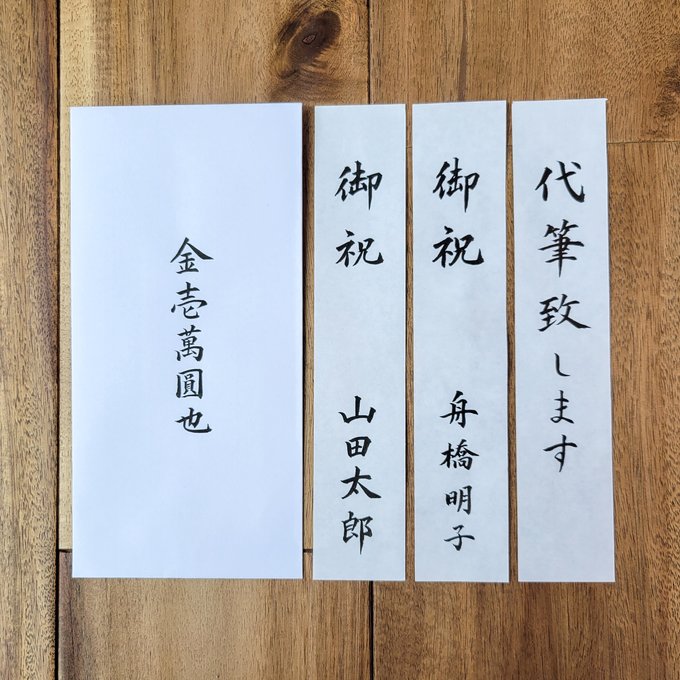 代筆致します
御祝
舟橋明子
御祝
山田太郎
金壱萬圓也